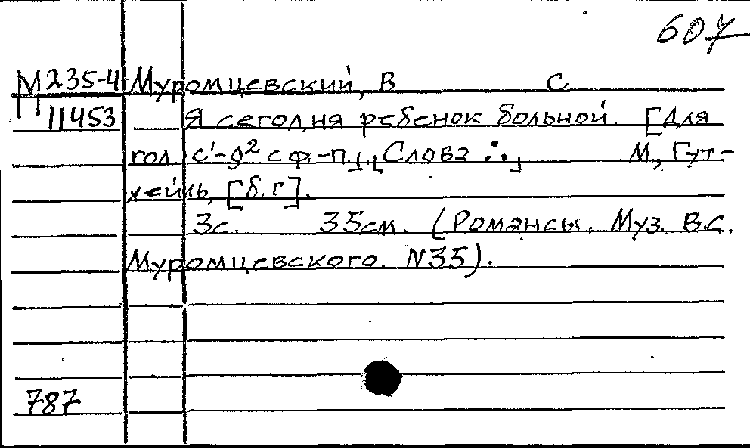 607
М 235-4 Муромцевский, В С.
11453 Я сегодня ребенок больной. [Для
гол. c¹-g² с ф-п.], [Слова ∴] М., Гут-
хейль, [б.г].
3с. 35см. (Романсы. Муз. В.С.
Муромцевского. N35).
787